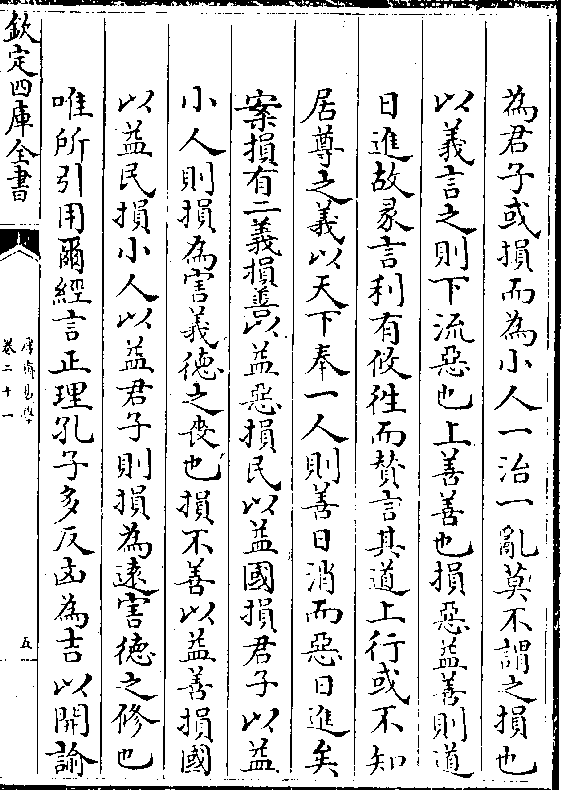 為君子或損而為小人一治一亂莫不謂之損也
以義言之則下流惡也上善善也損惡益善則道
日進故彖言利有攸徃而賛言其道上行或不知
居尊之義以天下奉一人則善日消而惡日進矣
案損有二義損善以益惡損民以益國損君子以益
小人則損為害義徳之喪也損不善以益善損國
以益民損小人以益君子則損為逺害徳之修也
唯所引用爾經言正理孔子多反凶為吉以開諭
欽定四庫全書
厚齋易學
卷二十一
五